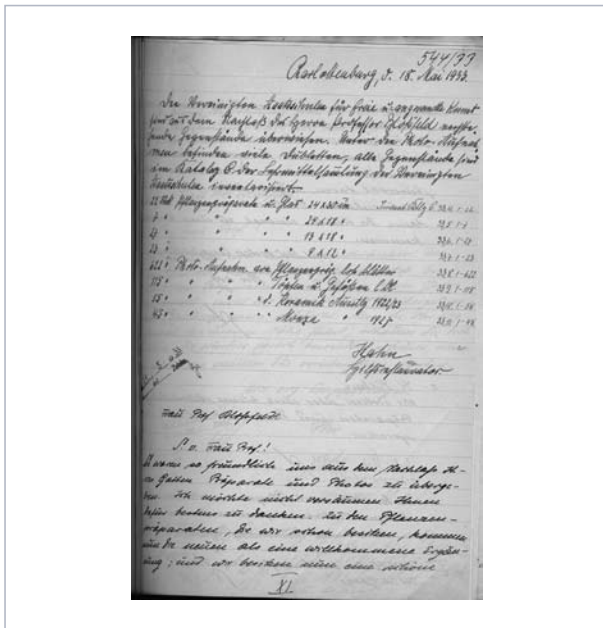 544/33
Charlottenburg, d. 18. Mai 1933.
Den Vereinigten Staatsschulen für freie u. angewandte Kunst
sind aus dem Nachlaß des Herrn Professor Bloßfeld nachste-
hende Gegenstände überwiesen. Unter den Photo-Aufnah-
men befinden viele Dubletten, alle Gegenstände sind
im Katalog C der Lehrmittelsammlung der Vereinigten
Staatsschulen inventarisiert.
Pflanzenpräparate u. Glas 24 x 30 cm
" " " 24 x 18 "
" " " 13 x 18 "
" " " 9 x 12 "
622 " Photo-Aufnahm. von Pflanzenpräp. lose Blätter
" " " Töpfen u. Gefäßen
" " " d. Keramik 1922/23
" " " Monza " 1927
Hahn
Hilfsrestaurator
Frau Prof. Blossfeldt
S. v. Frau Prof.!
waren so freundlich uns aus dem Nachlass
Gatten Präparate und Photos zu überge-
ben. Ich möchte nicht versäumen Ihnen
dafür bestens zu danken. Zu den Pflanzen-
präparaten, die wir schon besitzen, kommen
nun die neuen als eine willkommene Ergän-
zung; und wir besitzen nun eine schöne
XI.